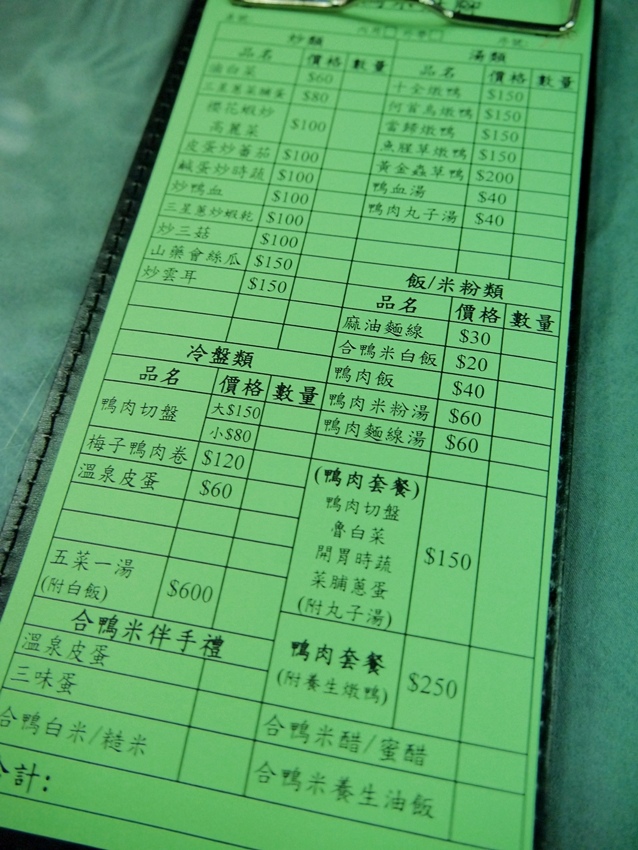 炒類
品名 價格 數量
滷白菜 $60
三星蔥菜脯蛋 $80
櫻花蝦炒
高麗菜 $100
皮蛋炒蕃茄 $100
鹹蛋炒時蔬 $100
炒鴨血 $100
三星蔥炒蝦乾 $100
炒三菇 $100
山藥會絲瓜 $150
炒雲耳 $150
湯類
品名 價格 數量
十全燉鴨 $150
何首烏燉鴨 $150
當歸燉鴨 $150
魚腥草燉鴨 $150
黃金蟲草鴨 $200
鴨血湯 $40
鴨肉丸子湯 $40
飯/米粉類
品名 價格 數量
麻油麵線 $30
合鴨米白飯 $20
鴨肉飯 $40
鴨肉米粉湯 $60
鴨肉麵線湯 $60
冷盤類
品名 價格 數量
鴨肉切盤 大$150
小$80
梅子鴨肉卷 $120
溫泉皮蛋 $60
五菜一湯
(附白飯) $600
(鴨肉套餐)
鴨肉切盤
魯白菜
開胃時蔬
菜脯蔥蛋
(附丸子湯)
$150
鴨肉套餐
(附養生燉鴨)
$250
合鴨米伴手禮
溫泉皮蛋
三味蛋
合鴨白米/糙米
合鴨米醋/蜜醋
合鴨米養生油飯
合計: